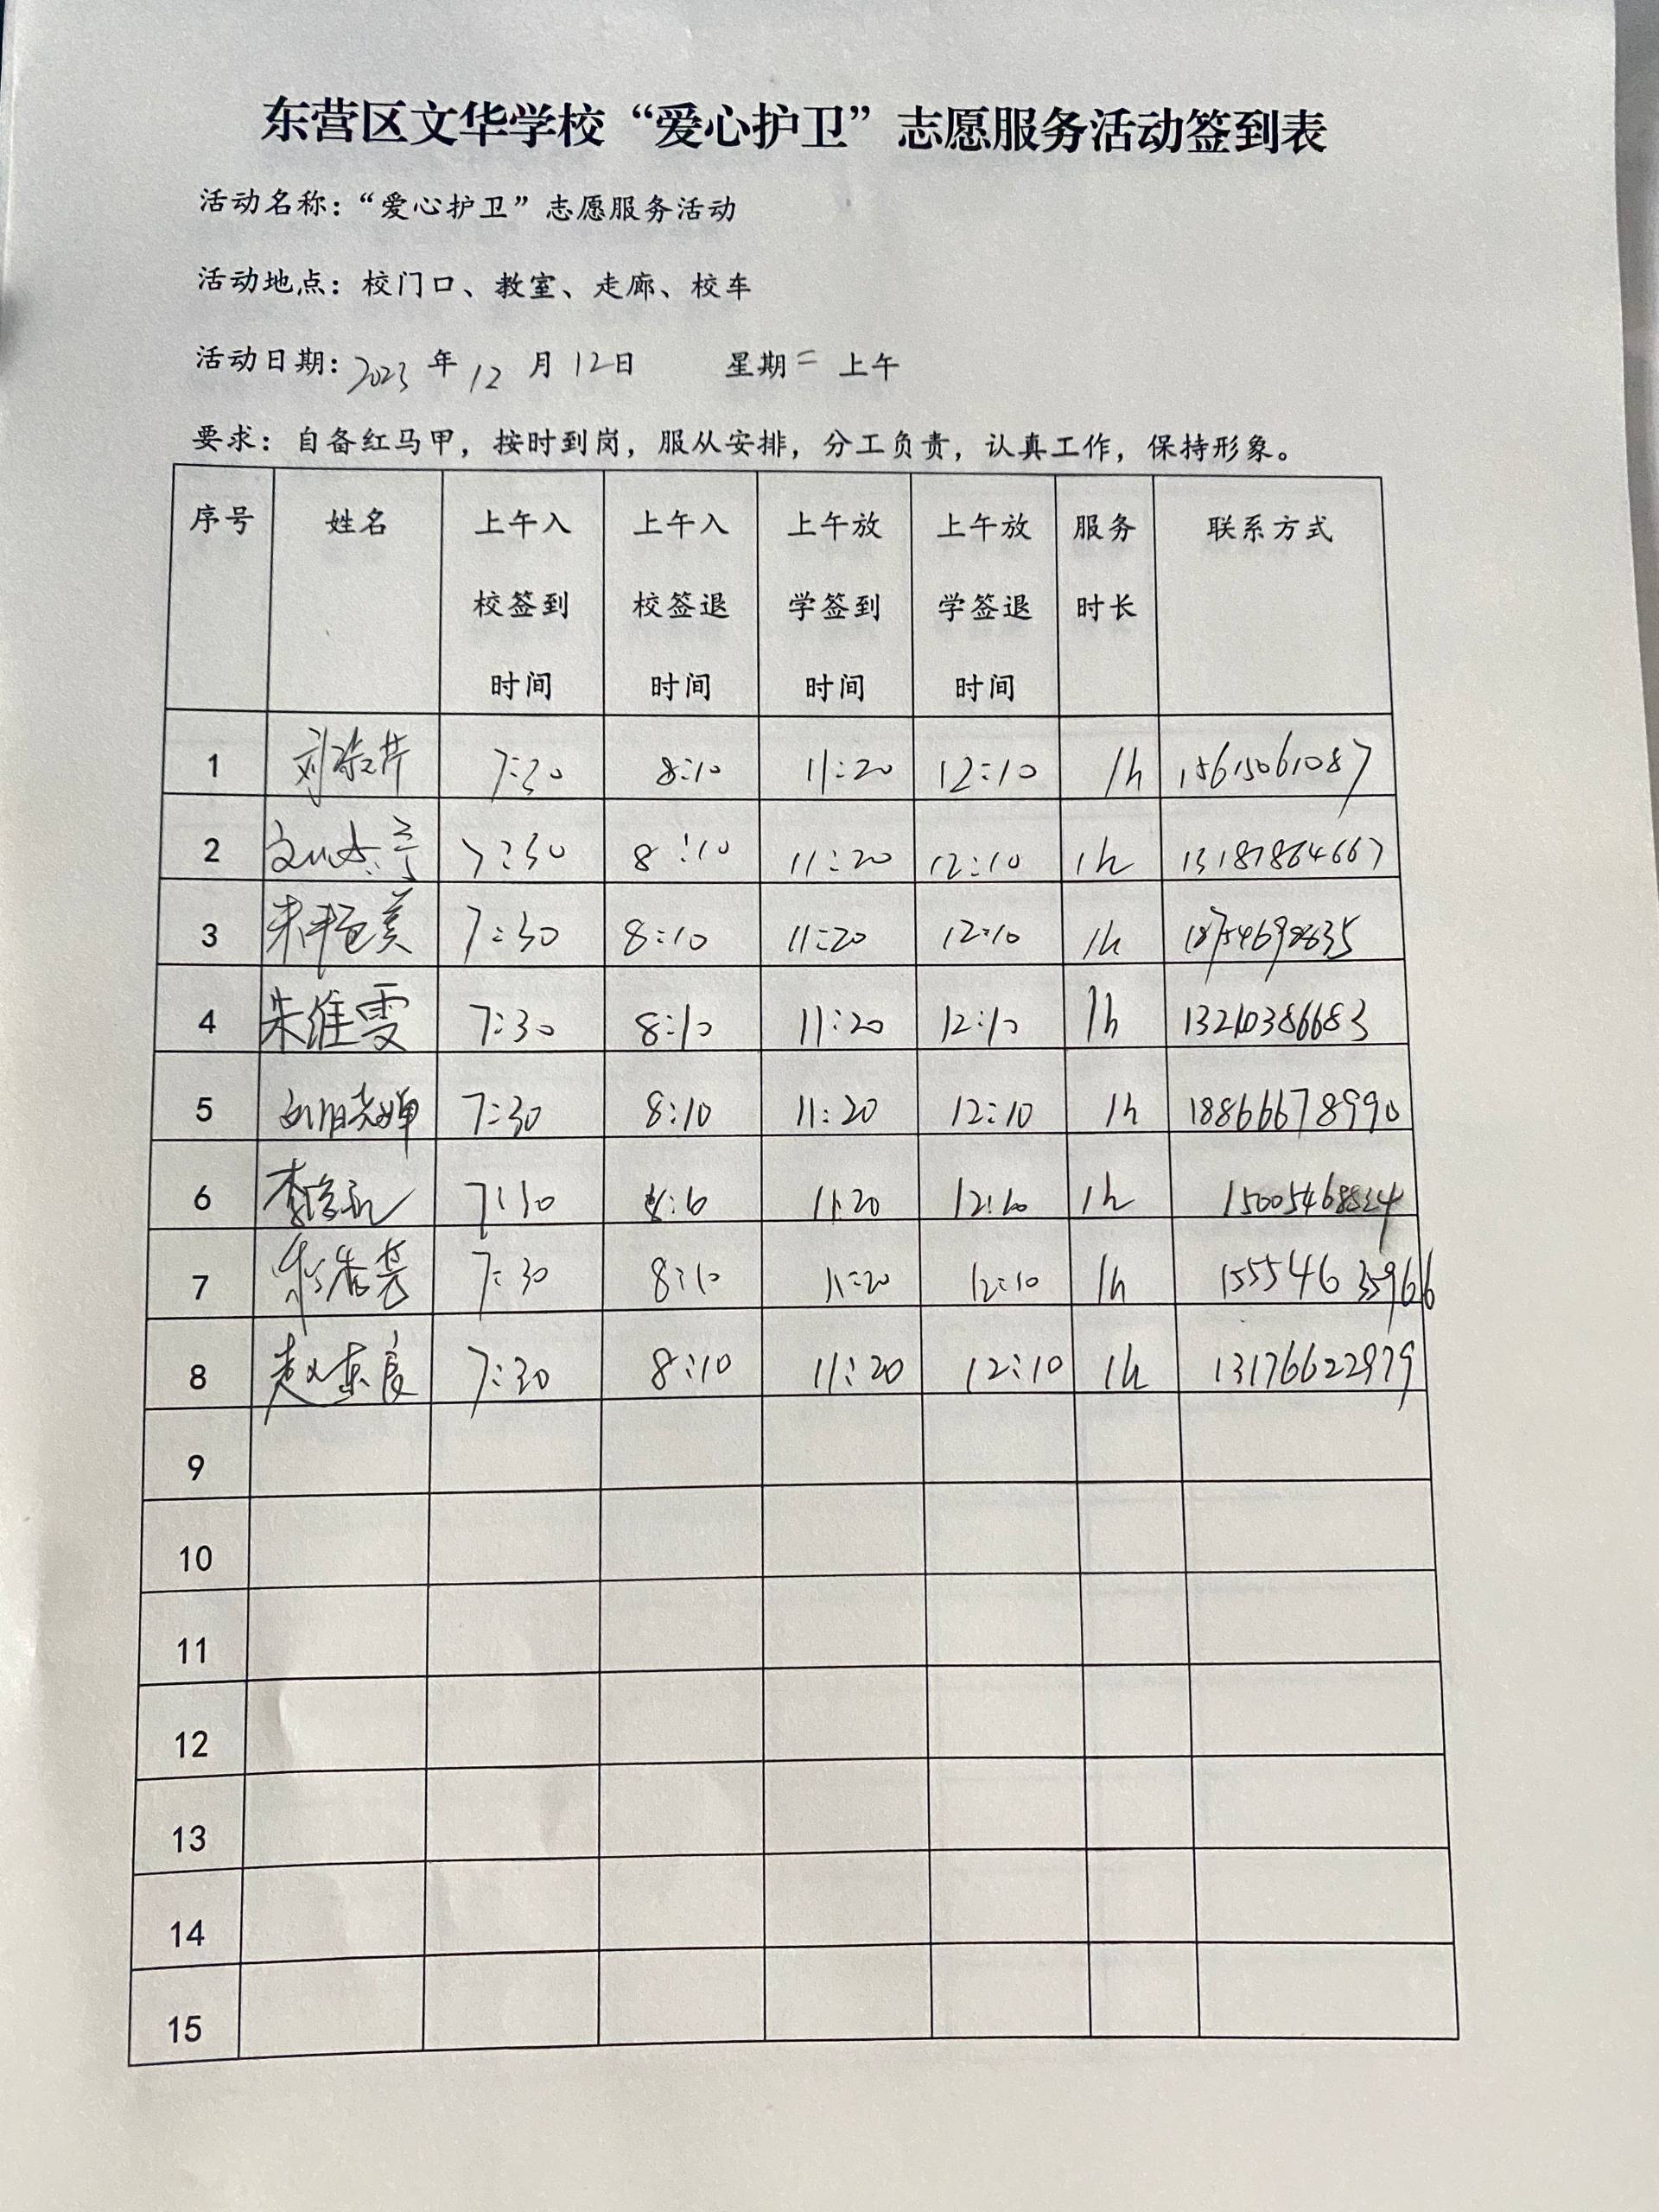 东营区文华学校“爱心护卫”志愿服务活动签到表
活动名称：“爱心护卫”志愿服务活动
活动地点：校门口、教室、走廊、校车
活动日期：2023 年 12 月 12日 星期二 上午
要求：自备红马甲，按时到岗，服从安排，分工负责，认真工作，保持形象。
序号 姓名 上午入校签到时间 上午入校签退时间 上午放学签到时间 上午放学签退时间 服务时长 联系方式
1 7:30 8:10 11:20 12:10 1h 15615061087
2 7:30 8:10 11:20 12:10 1h 13187864667
3 7:30 8:10 11:20 12:10 1h 18754698635
4 朱维雯 7:30 8:10 11:20 12:10 1h 13210386683
5 7:30 8:10 11:20 12:10 1h 18866678990
6 7:30 11:20 12:10 1h
7 7:30 8:10 11:20 12:10 1h 15554635966
8 赵东良 7:30 8:10 11:20 12:10 1h 13176622979
9
10
11
12
13
14
15